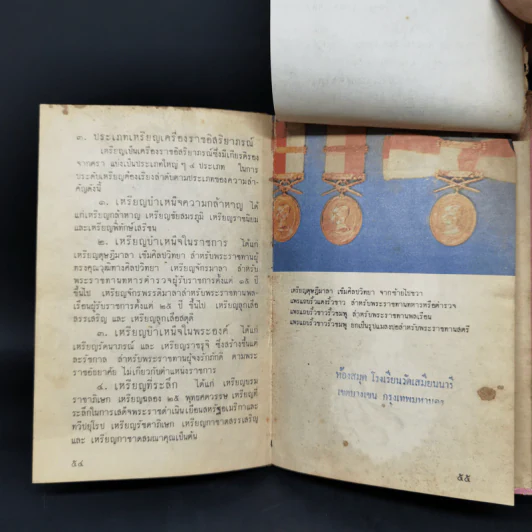 ๓. ประเภทเหรียญเครื่องราชอิสริยาภรณ์
เหรียญเป็นเครื่องราชอิสริยาภรณ์ซึ่งมีเกียรติรอง
จากตรา แบ่งเป็นประเภทใหญ่ ๆ ๔ ประเภท ในการ
ประดับเหรียญต้องเรียงลำดับตามประเภทของความสำ-
คัญดังนี้
๑. เหรียญบำเหน็จความกล้าหาญ ได้
แก่เหรียญกล้าหาญ เหรียญชัยสมรภูมิ เหรียญราชนิยม
และเหรียญพิทักษ์เสรีชน
๒. เหรียญบำเหน็จในราชการ ได้แก่
เหรียญดุษฎีมาลา เข็มศิลปวิทยา สำหรับพระราชทานผู้
ทรงคุณวุฒิทางศิลปวิทยา เหรียญจักรมาลา สำหรับ
พระราชทานทหารตำรวจผู้รับราชการตั้งแต่ ๑๕ ปี
ขึ้นไป เหรียญจักรพรรดิมาลาสำหรับพระราชทานพล-
เรือนผู้รับราชการตั้งแต่ ๒๕ ปี ขึ้นไป เหรียญลูกเสือ
สรรเสริญ และ เหรียญลูกเสือสดุดี
๓. เหรียญบำเหน็จในพระองค์ ได้แก่
เหรียญรัตนาภรณ์ และ เหรียญราชรุจิ ซึ่งสร้างขึ้นแต่
ละรัชกาล สำหรับพระราชทานผู้จงรักภักดี ตามพระ
ราชอัธยาศัย ไม่เกี่ยวกับตำแหน่งราชการ
๔. เหรียญที่ระลึก ได้แก่ เหรียญบรม
ราชาภิเษก เหรียญฉลอง ๒๕ พุทธศตวรรษ เหรียญที่
ระลึกในการเสด็จพระราชดำเนินเยือนสหรัฐอเมริกาและ
ทวีปยุโรป เหรียญรัชดาภิเษก เหรียญกาชาดสรรเสริญ
และ เหรียญกาชาดสมนาคุณเป็นต้น
๕๔
เหรียญดุษฎีมาลา เข็มศิลปวิทยา จากซ้ายไปขวา
แพรแถบริ้วแดงริ้วขาว สำหรับพระราชทานทหารหรือตำรวจ
แพรแถบริ้วขาวริ้วชมพู สำหรับพระราชทานพลเรือน
แพรแถบริ้วขาวริ้วชมพู ผูกเป็นรูปแมลงปอสำหรับพระราชทานสตรี
ห้องสมุด โรงเรียนวัดเสมียนนารี
เขตบางเขน กรุงเทพมหานคร
๕๕